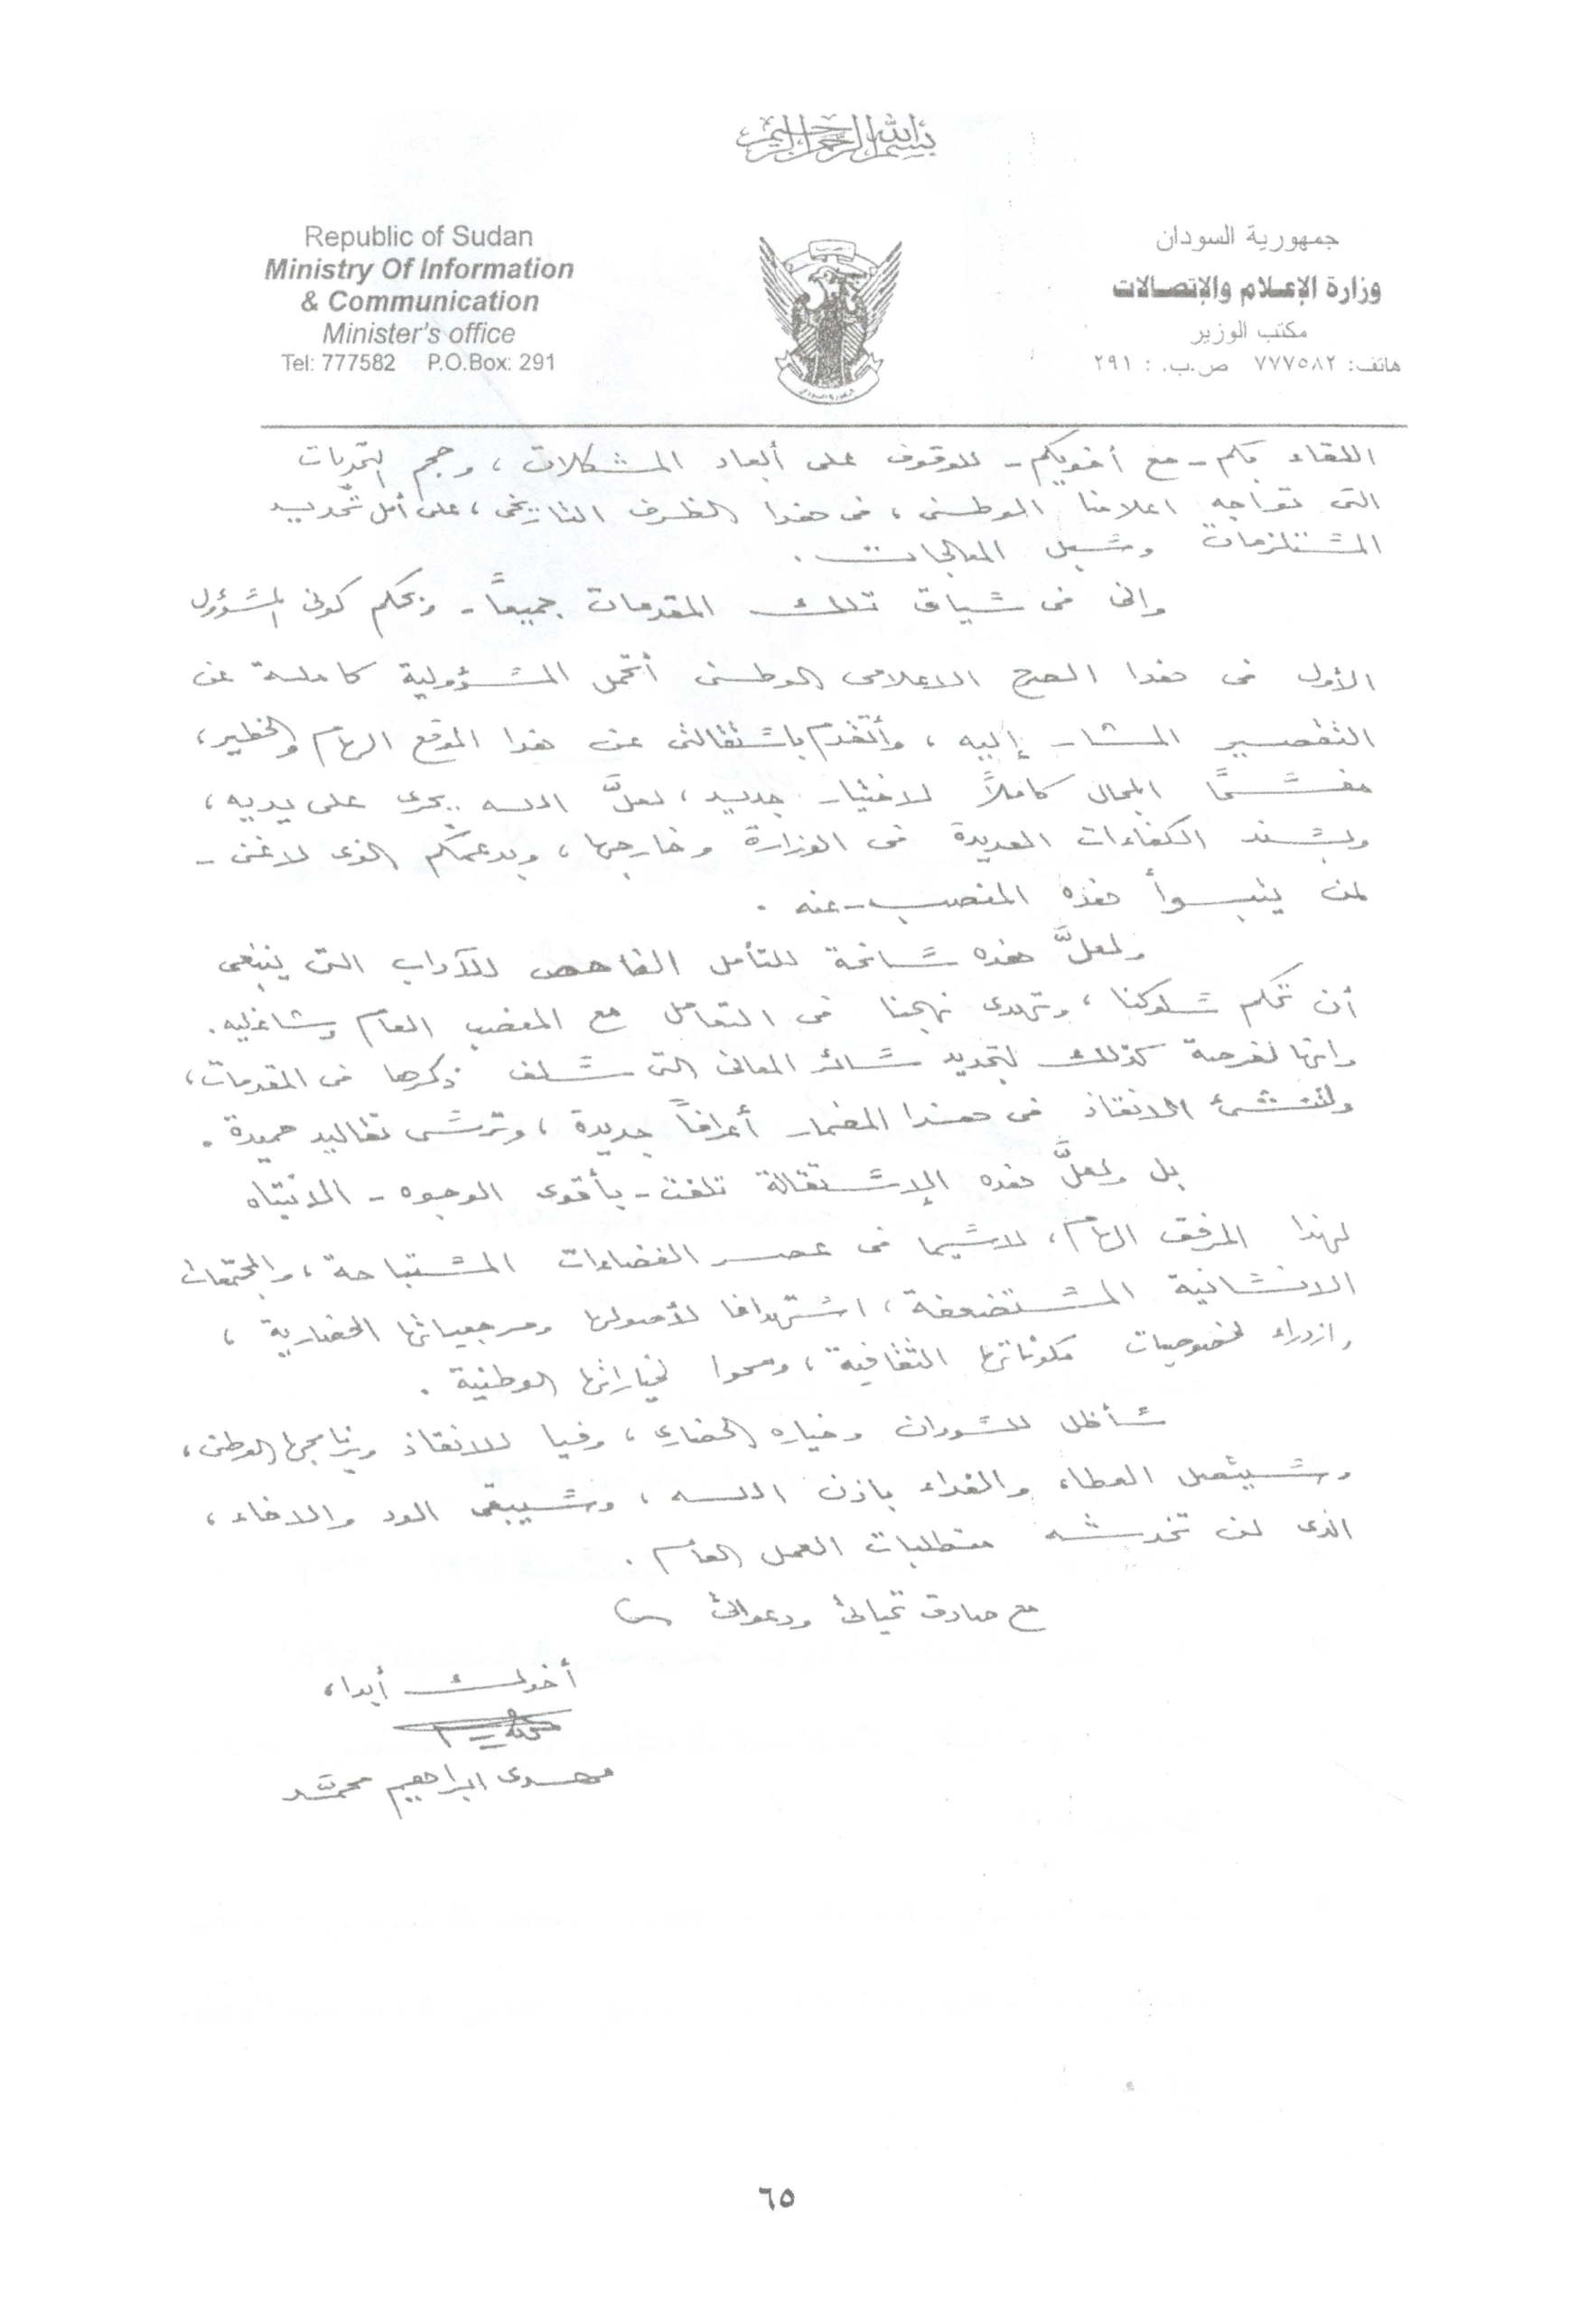 بسم الله الرحمن الرحيم
Republic of Sudan
Ministry Of Information
& Communication
Minister's office
Tel: 777582 P.O.Box: 291
جمهورية السودان
وزارة الإعلام والإتصالات
مكتب الوزير
هاتف: ٧٧٧٥٨٢ ص.ب. : ٢٩١
اللقاء بكم - مع أخويكم - للوقوف على أبعاد المشكلات ، وحجم التحديات
التى تواجه اعلامنا الوطنى ، فى هذا الظرف التاريخى ، على أمل تحديد
المستلزمات وسبل المعالجات .
وانى فى سياق تلك المقدمات جميعاً - وبحكم كونى المسؤول
الأول فى هذا الصرح الاعلامى الوطنى أتحمل المسؤولية كاملة عن
التقصير المشار إليه ، وأتقدم باستقالتى عن هذا الموقع الهام والخطير ،
مفسحًا المجال كاملاً لاختيار جديد ، لعلَّ الله يجرى على يديه ،
وبسند الكفاءات العديدة فى الوزارة وخارجها ، وبدعمكم الذى لا غنى -
لمن يتبوأ هذه المنصب - عنه .
ولعلَّ هذه سانحة للتأمل الفاحص للآداب التى ينبغى
أن تحكم سلوكنا ، وتهدى نهجنا فى التعامل مع المنصب العام وشاغليه .
وانها لفرصة كذلك لتجديد سائر المعانى التى سلف ذكرها فى المقدمات ،
ولتنشئ الانقاذ فى هذا المضمار أعرافاً جديدة ، وترسى تقاليد حميدة .
بل ولعلَّ هذه الإستقالة تلفت - بأقوى الوجوه - الانتباه
لهذا المرفق الهام ، لاسيما فى عصر الفضاءات المستباحة ، والمجتمعات
الانسانية المستضعفة ، استهدافا لأصولها ومرجعياتها الحضارية ،
وازدراء لخصوصيات مكوناتها الثقافية ، ومحوا لخياراتها الوطنية .
سأظل للسودان وخياره الحضارى ، وفيا للانقاذ وبرنامجها الوطنى ،
وسيتصل العطاء والفداء باذن الله ، وسيبقى الود والاخاء ،
الذى لن تخدشه متطلبات العمل العام .
مع صادق تحياتى ودعواتى
أخوك أبدا ،
مهدى ابراهيم محمد
٦٥